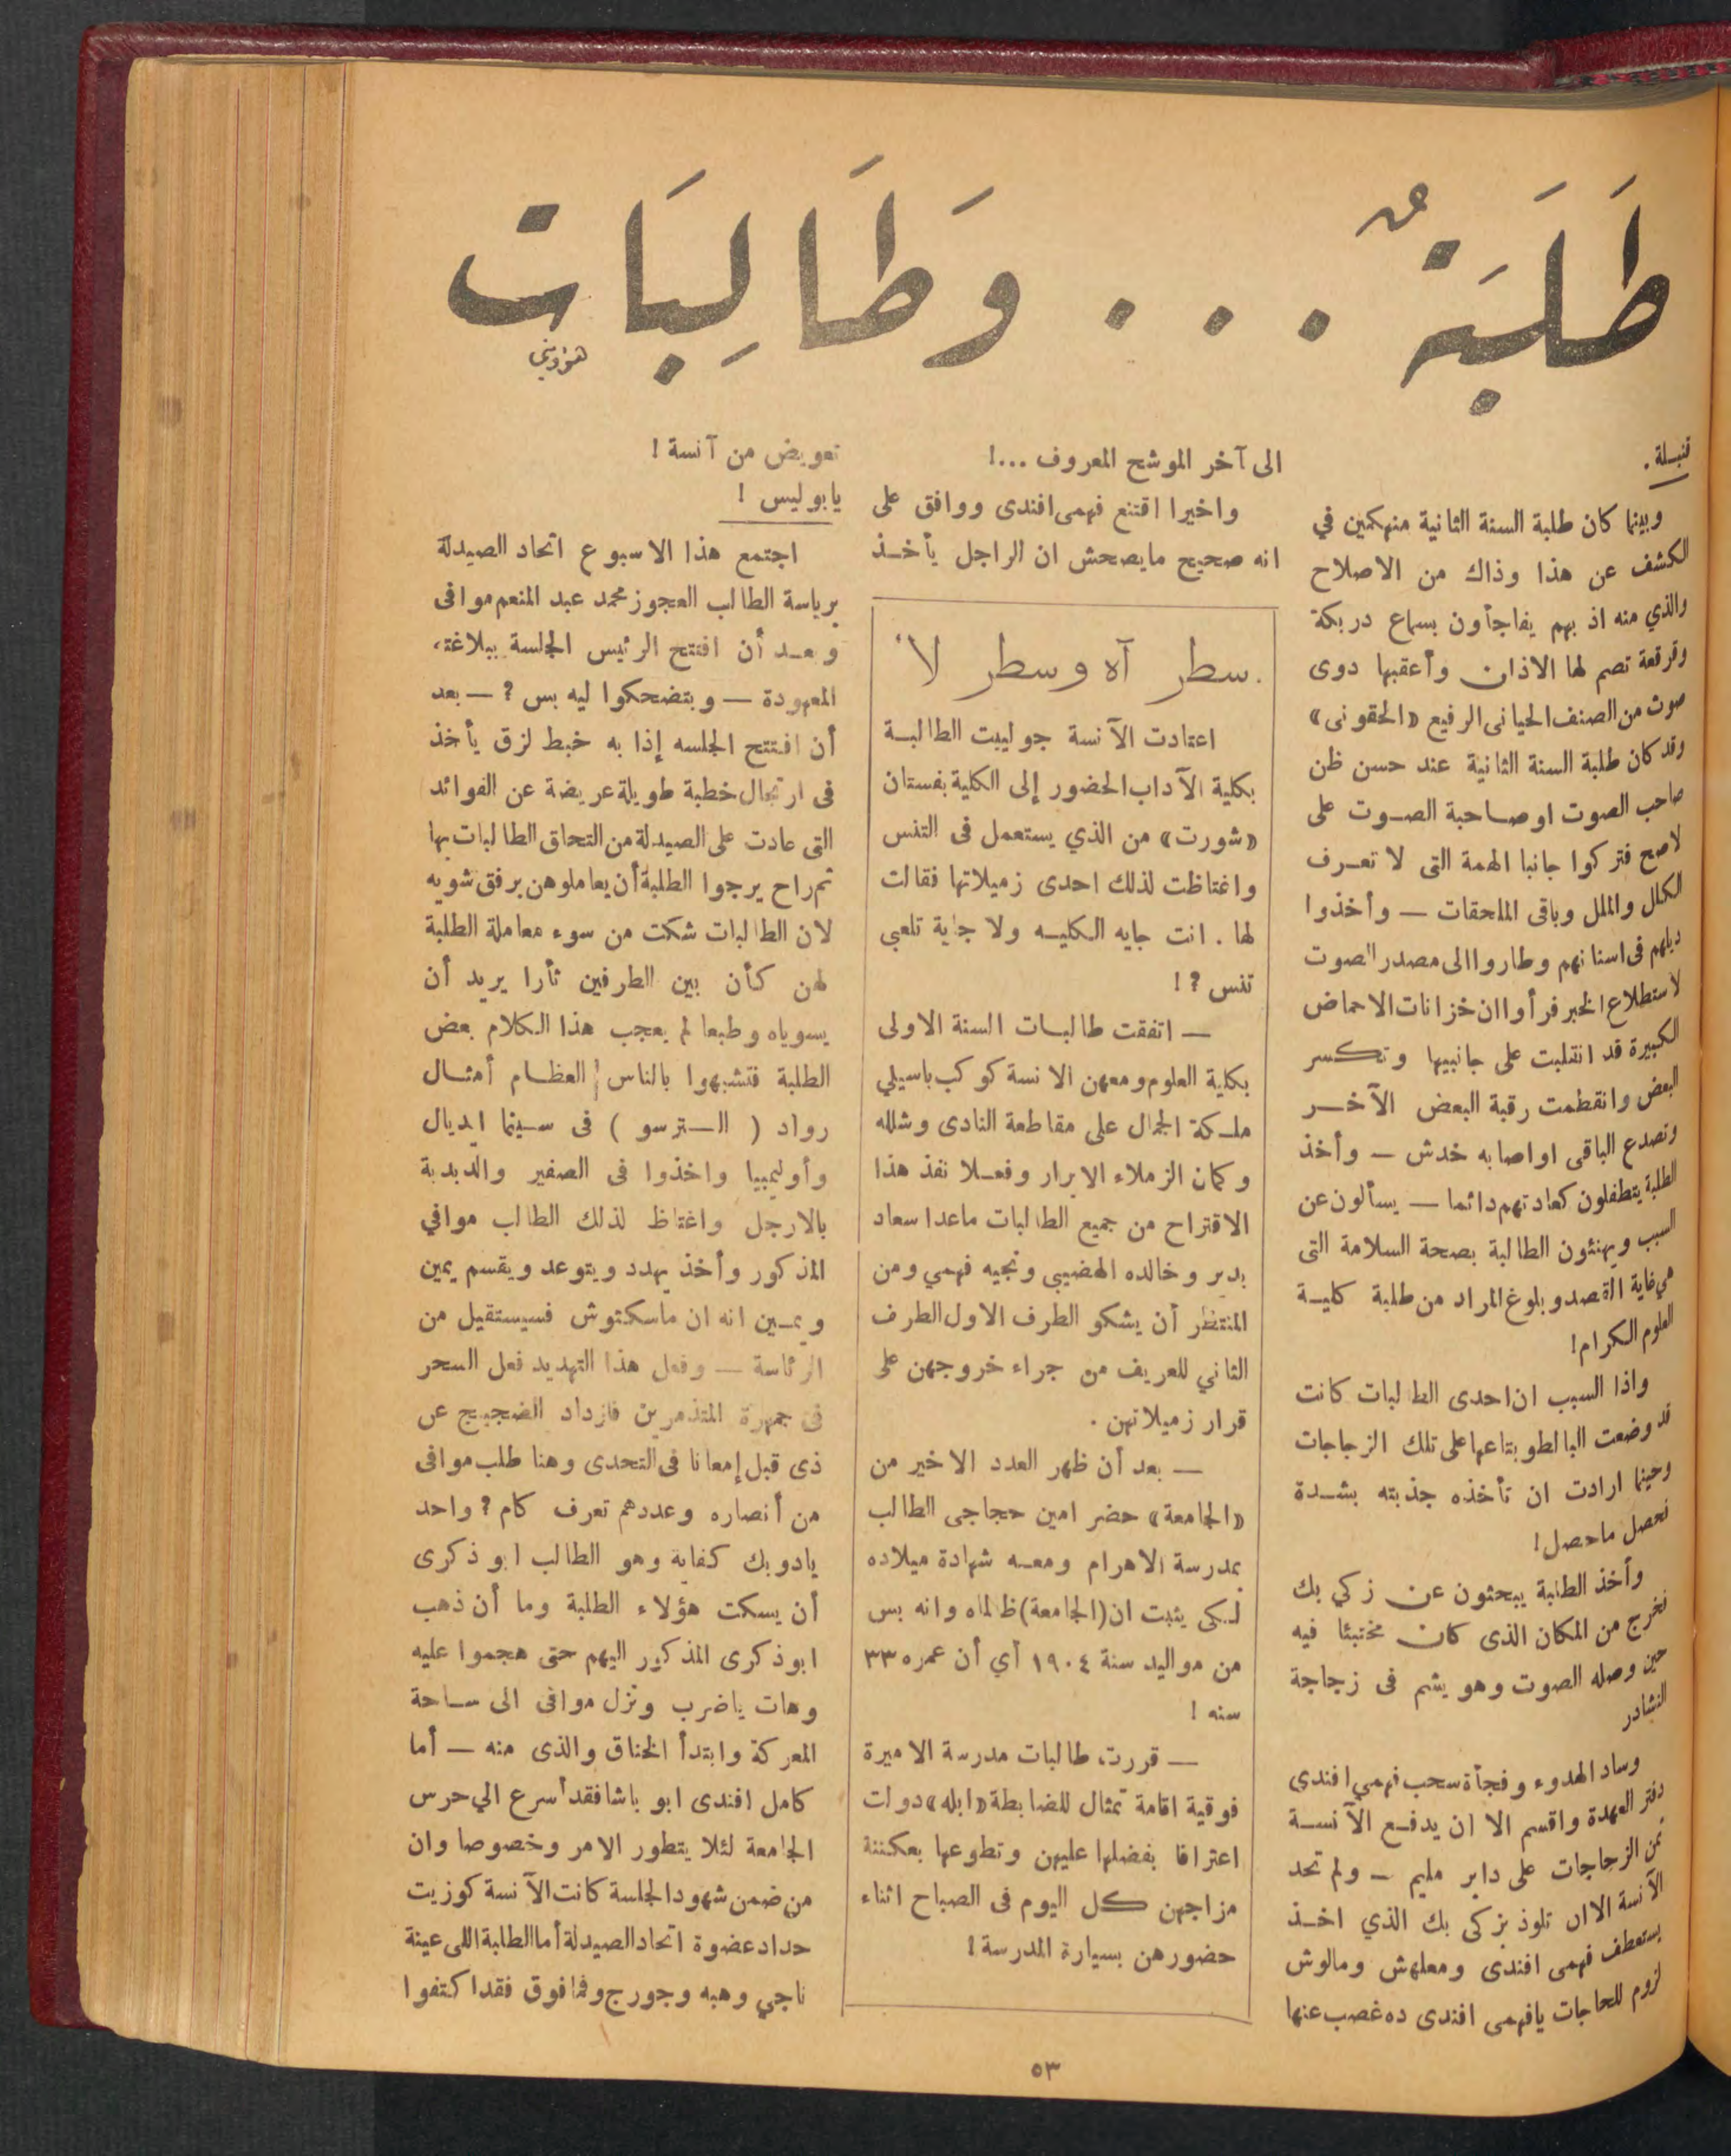 طَلَبَةٌ . . . وَطَالِبَات
قنبلة .
وبينما كان طلبة السنة الثانية منهمكين في
الكشف عن هذا وذاك من الاصلاح
والذي منه اذ بهم يفاجأون بسماع دربكة
وفرقعة تصم لها الاذان وأعقبها دوى
صوت من الصنف الحيانى الرفيع «الحقونى»
وقد كان طلبة السنة الثانية عند حسن ظن
صاحب الصوت او صاحبة الصوت على
لاصح فتركوا جانبا الهمة التى لا تعرف
الكلل والملل وباقى الملحقات — وأخذوا
ديلهم فى اسنانهم وطاروا الى مصدر الصوت
لاستطلاع الخبر فرأوا ان خزانات الاحماض
الكبيرة قد انقلبت على جانبيها وتكسر
البعض وانقطمت رقبة البعض الآخر
وتصدع الباقى او اصابه خدش — وأخذ
الطلبة يتطفلون كعادتهم دائما — يسألون عن
السبب ويهنئون الطالبة بصحة السلامة التى
هي غاية القصد وبلوغ المراد من طلبة كلية
العلوم الكرام!
واذا السبب ان احدى الطالبات كانت
قد وضعت البالطو بتاعها على تلك الزجاجات
وحينما ارادت ان تأخذه جذبته بشدة
فحصل ماحصل!
وأخذ الطلبة يبحثون عن زكي بك
فخرج من المكان الذى كان مختبئا فيه
حين وصله الصوت وهو يشم فى زجاجة
النشادر
وساد الهدوء وفجأة سحب فهمي افندى
دفتر العهدة واقسم الا ان يدفع الآنسة
ثمن الزجاجات على داير مليم — ولم تجد
الآنسة الا ان تلوذ بزكى بك الذي اخذ
يستعطف فهمى افندى ومعلهش ومالوش
لزوم للحاجات يافهمى افندى ده غصب عنها
الى آخر الموشح المعروف ...!
واخيرا اقتنع فهمى افندى ووافق على
انه صحيح مايصحش ان الراجل يأخذ
سطر آه وسطر لا
اعتادت الآنسة جولييت الطالبة
بكلية الآداب الحضور إلى الكلية بفستان
«شورت» من الذي يستعمل فى التنس
واغتاظت لذلك احدى زميلاتها فقالت
لها . انت جايه الكليه ولا جاية تلعبى
تنس ?!
— اتفقت طالبات السنة الاولى
بكلية العلوم ومعهن الانسة كوكب باسيلي
ملكة الجمال على مقاطعة النادى وشلله
وكمان الزملاء الابرار وفعلا نفذ هذا
الاقتراح من جميع الطالبات ماعدا سعاد
بدير وخالده الهضيبى ونجيه فهمي ومن
المنتظر أن يشكو الطرف الاول الطرف
الثاني للعريف من جراء خروجهن على
قرار زميلاتهن .
— بعد أن ظهر العدد الاخير من
«الجامعة» حضر امين حجاجى الطالب
بمدرسة الاهرام ومعه شهادة ميلاده
لكى يثبت ان (الجامعة) ظالماه وانه بس
من مواليد سنة ١٩٠٤ أي أن عمره ٣٣
سنه !
— قررت طالبات مدرسة الاميرة
فوقية اقامة تمثال للضابطة «ابله» دولت
اعترافا بفضلها عليهن وتطوعها بعكننة
مزاجهن كل اليوم فى الصباح اثناء
حضورهن بسيارة المدرسة !
تعويض من آنسة !
يا بوليس !
اجتمع هذا الاسبوع اتحاد الصيدلة
برياسة الطالب العجوز محمد عبد المنعم موافى
وبعد أن افتتح الرئيس الجلسة ببلاغته
المعهودة — وبتضحكوا ليه بس ? — بعد
أن افتتح الجلسه إذا به خبط لزق يأخذ
فى ارتجال خطبة طويلة عريضة عن الفوائد
التى عادت على الصيدلة من التحاق الطالبات بها
ثم راح يرجوا الطلبة أن يعاملوهن برفق شويه
لان الطالبات شكت من سوء معاملة الطلبة
لهن كأن بين الطرفين ثأرا يريد أن
يسوياه وطبعا لم يعجب هذا الكلام بعض
الطلبة فتشبهوا بالناس العظام أمثال
رواد ( الترسو ) فى سينما ايديال
وأوليمبيا واخذوا فى الصفير والدبدبة
بالارجل واغتاظ لذلك الطالب موافي
المذكور وأخذ يهدد ويتوعد ويقسم يمين
ويمين انه ان ماسكتوش فسيستقيل من
الرئاسة — وفعل هذا التهديد فعل السحر
فى جمهرة المتذمرين فازداد الضجيج عن
ذى قبل إمعانا فى التحدى وهنا طلب موافى
من أنصاره وعددهم تعرف كام ? واحد
يادوبك كفاية وهو الطالب ابو ذكرى
أن يسكت هؤلاء الطلبة وما أن ذهب
ابو ذكرى المذكور اليهم حتى هجموا عليه
وهات ياضرب ونزل موافى الى ساحة
المعركة وابتدأ الخناق والذى منه — أما
كامل افندى ابو باشا فقد أسرع الي حرس
الجامعة لئلا يتطور الامر وخصوصا وان
من ضمن شهود الجلسة كانت الآنسة كوزيت
حداد عضوة اتحاد الصيدلة أما الطلبة اللى عينة
ناجي وهبه وجورج وفما فوق فقد اكتفوا
٥٣